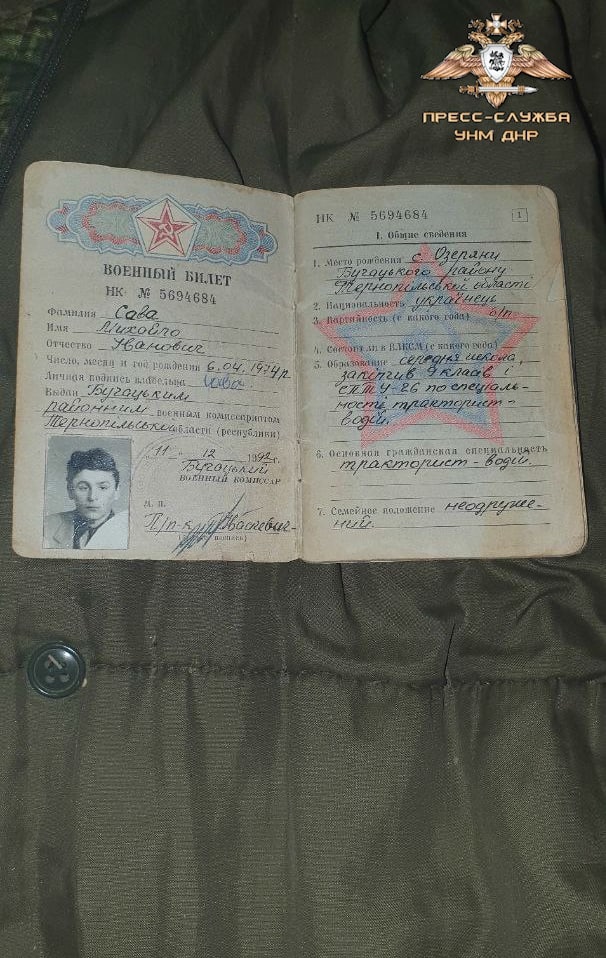 ПРЕСС-СЛУЖБА
УНМ ДНР
ВОЕННЫЙ БИЛЕТ
НК № 5694684
Фамилия Сава
Имя Михайло
Отчество Иванович
Число, месяц и год рождения 6.04.1974р
Личная подпись владельца Сава
Выдан Бучацьким
районним военным комиссариатом
Тернопільської области (республики)
"11" 12 1992 г.
Бучацький
ВОЕННЫЙ КОМИССАР
М. П.
П/п-к
НК № 5694684
1
I. Общие сведения
1. Место рождения с. Озеряни
Бучацького району
Тернопільської області
2. Национальность українець
3. Партийность (с какого года) б/п
4. Состоял ли в ВЛКСМ (с какого года)
5. Образование середня школа,
закінчив 9 класів і
СПТУ-26 по спеціаль-
ності тракторист-
водій.
6. Основная гражданская специальность
тракторист-водій.
7. Семейное положение неодруже-
ний.